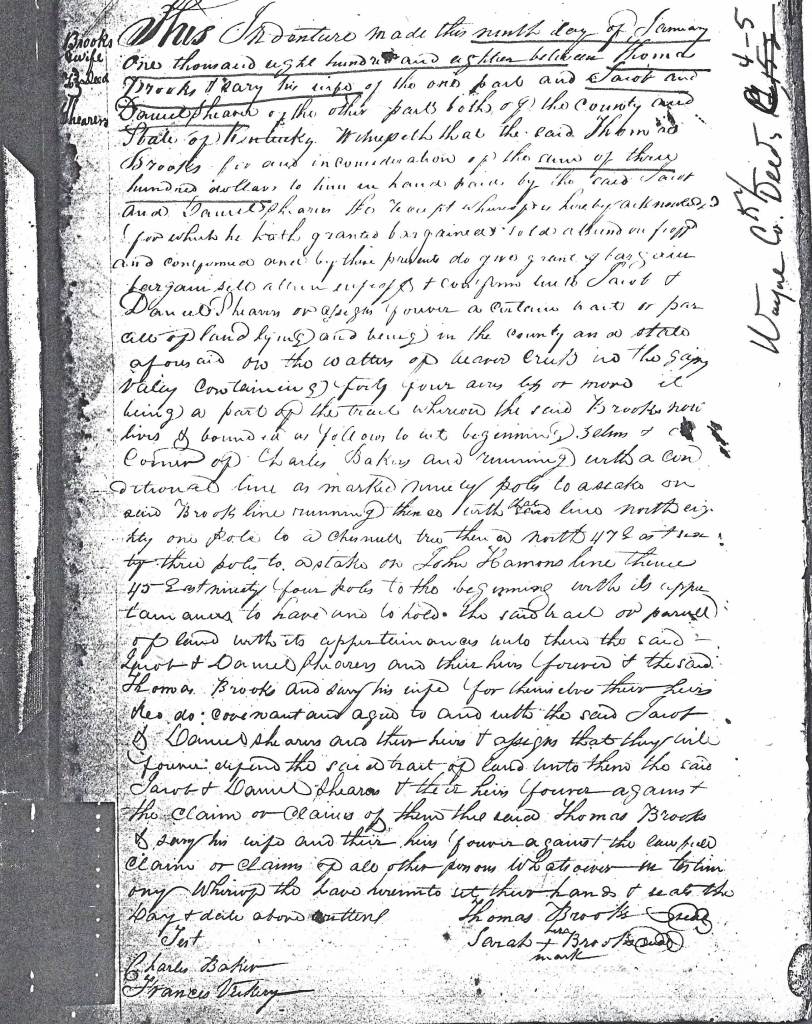 Brooks
& wife
To Deed
Shearers
This Indenture made this ninth day of January
one thousand eight hundred and eighteen between Thomas
Brooks & Sary his wife of the one part and Jacob and
Daniel Shearer of the other part both of the county and
State of Kentucky Witnesseth that the said Thomas
Brooks for and in consideration of the sum of three
hundred dollars to him in hand paid by the said Jacob
and Daniel Shearers the receipt whereof is hereby acknowledg
for which he hath granted bargained & sold
and confirmed and by these presents do give grant & bargain
bargain sell alien enfeoff & confirm unto Jacob &
Daniel Shearers or assigns forever a certain tract or par
cell of land lying and being in the county and state
aforesaid on the watters of beaver Creek in the
Valey Containing forty four acres less or more it
being a part of the tract whereon the said Brooks now
lives & bounded as follows to wit beginning 3 elms &
Corner of Charles Bakers and running with a con
ditional line as marked ninety poles to a stake on
said Brooks line running thence with that said line north eig
hty one pole to a chesnutt tree thence north 47 East six
ty three poles to a stake on John Hamons line thence
45 East ninety four poles to the beginning with its appe
tainances to have and to hold the said tract or parcell
of land with its appertainances unto them the said
Jacob & Daniel Shearers and their heirs forever & the said
Thomas Brooks and Sary his wife for themselves their heirs
do covenant and agree to and with the said Jacob
& Daniel Shearers and their heirs & assigns that they will
forever defend the said tract of land unto them the said
Jacob & Daniel Shearers & their heirs forever against
the claim or claims of them the said Thomas Brooks
& Sary his wife and their heirs forever against the lawfull
Claim or claims of all other persons whatsoever in testim
ony Whereof the have hereunto set their hands & seals the
Day & date above written Thomas Brooks seal
Test Sarah + Brooks seal
her
mark
Charles Baker
Francis Vickery
Wayne Co. Ky Deeds 4-5